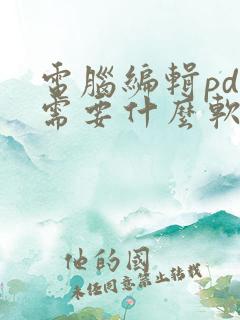 電腦編輯pd
需要什麼軟
他的國
未经同意禁止转载